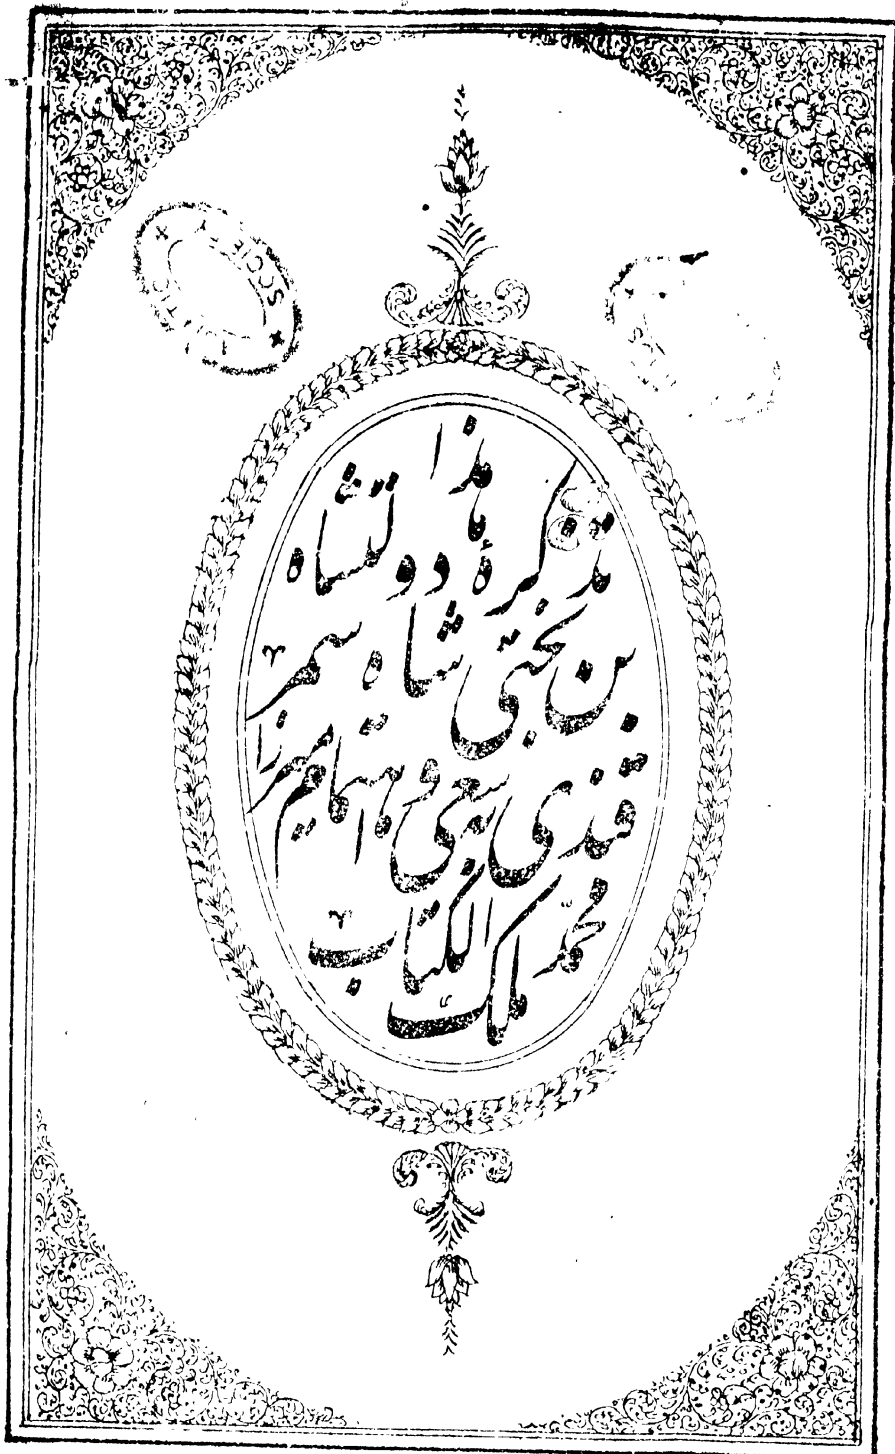 هذا
تذکرهٔ دولتشاه
بن بختی شاه سمر
قندی بسعی و اهتمام میرزا
محمّد ملک الکتاب
SOCIETY